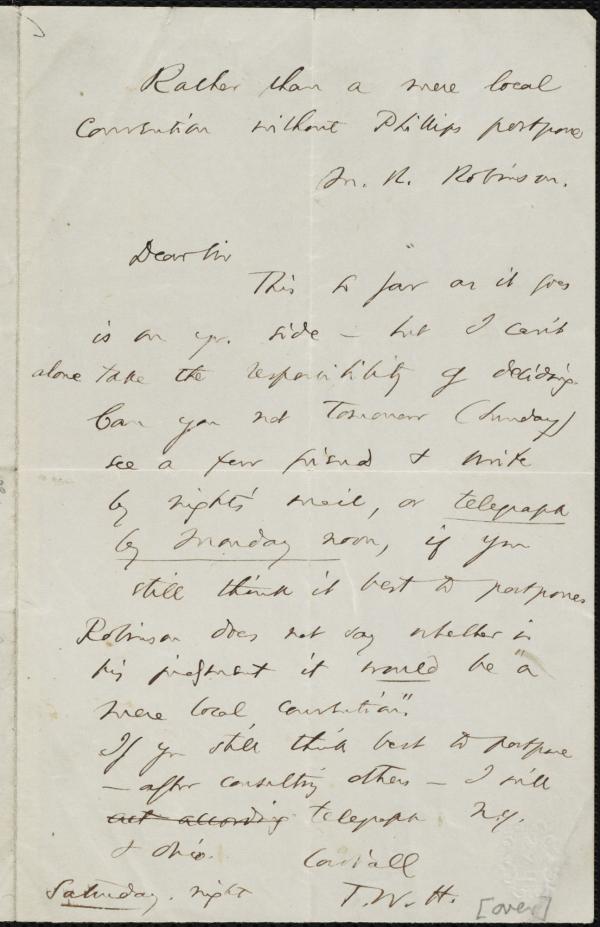 Rather than a mere local
Convention without Phillips postpone
M. R. Robinson.
Dear Sir
This so far as it goes
is on yr. side – but I can't
alone take the responsibility of deciding.
Can you not tomorrow (Sunday)
see a few friends & write
by night's mail, or telegraph
by Monday noon, if you
still think it best to postpone
Robinson does not say whether in
his judgment it would be "a
mere local convention".
If you still think best to postpone
– after consulting others – I will
act according telegraph N.Y.
& Ohio.
Cordiall
Saturday. night
T. W. H.
[over]